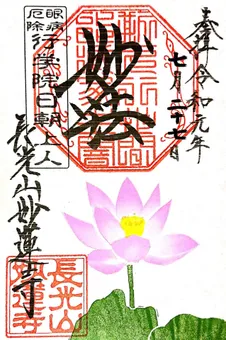 奉拝 令和元年
七月二十七日
妙法
眼病
厄除
行学院日朝上人
長光山妙蓮寺
長光山
妙蓮寺